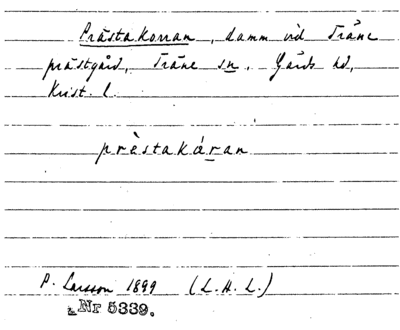 Prästakorran, damm vid Träne
prästgård, Träne sn, Gärds hd,
Krist. l.
prèstakáran
P. Larsson 1899 (L.H.L.)
Nr 5339.